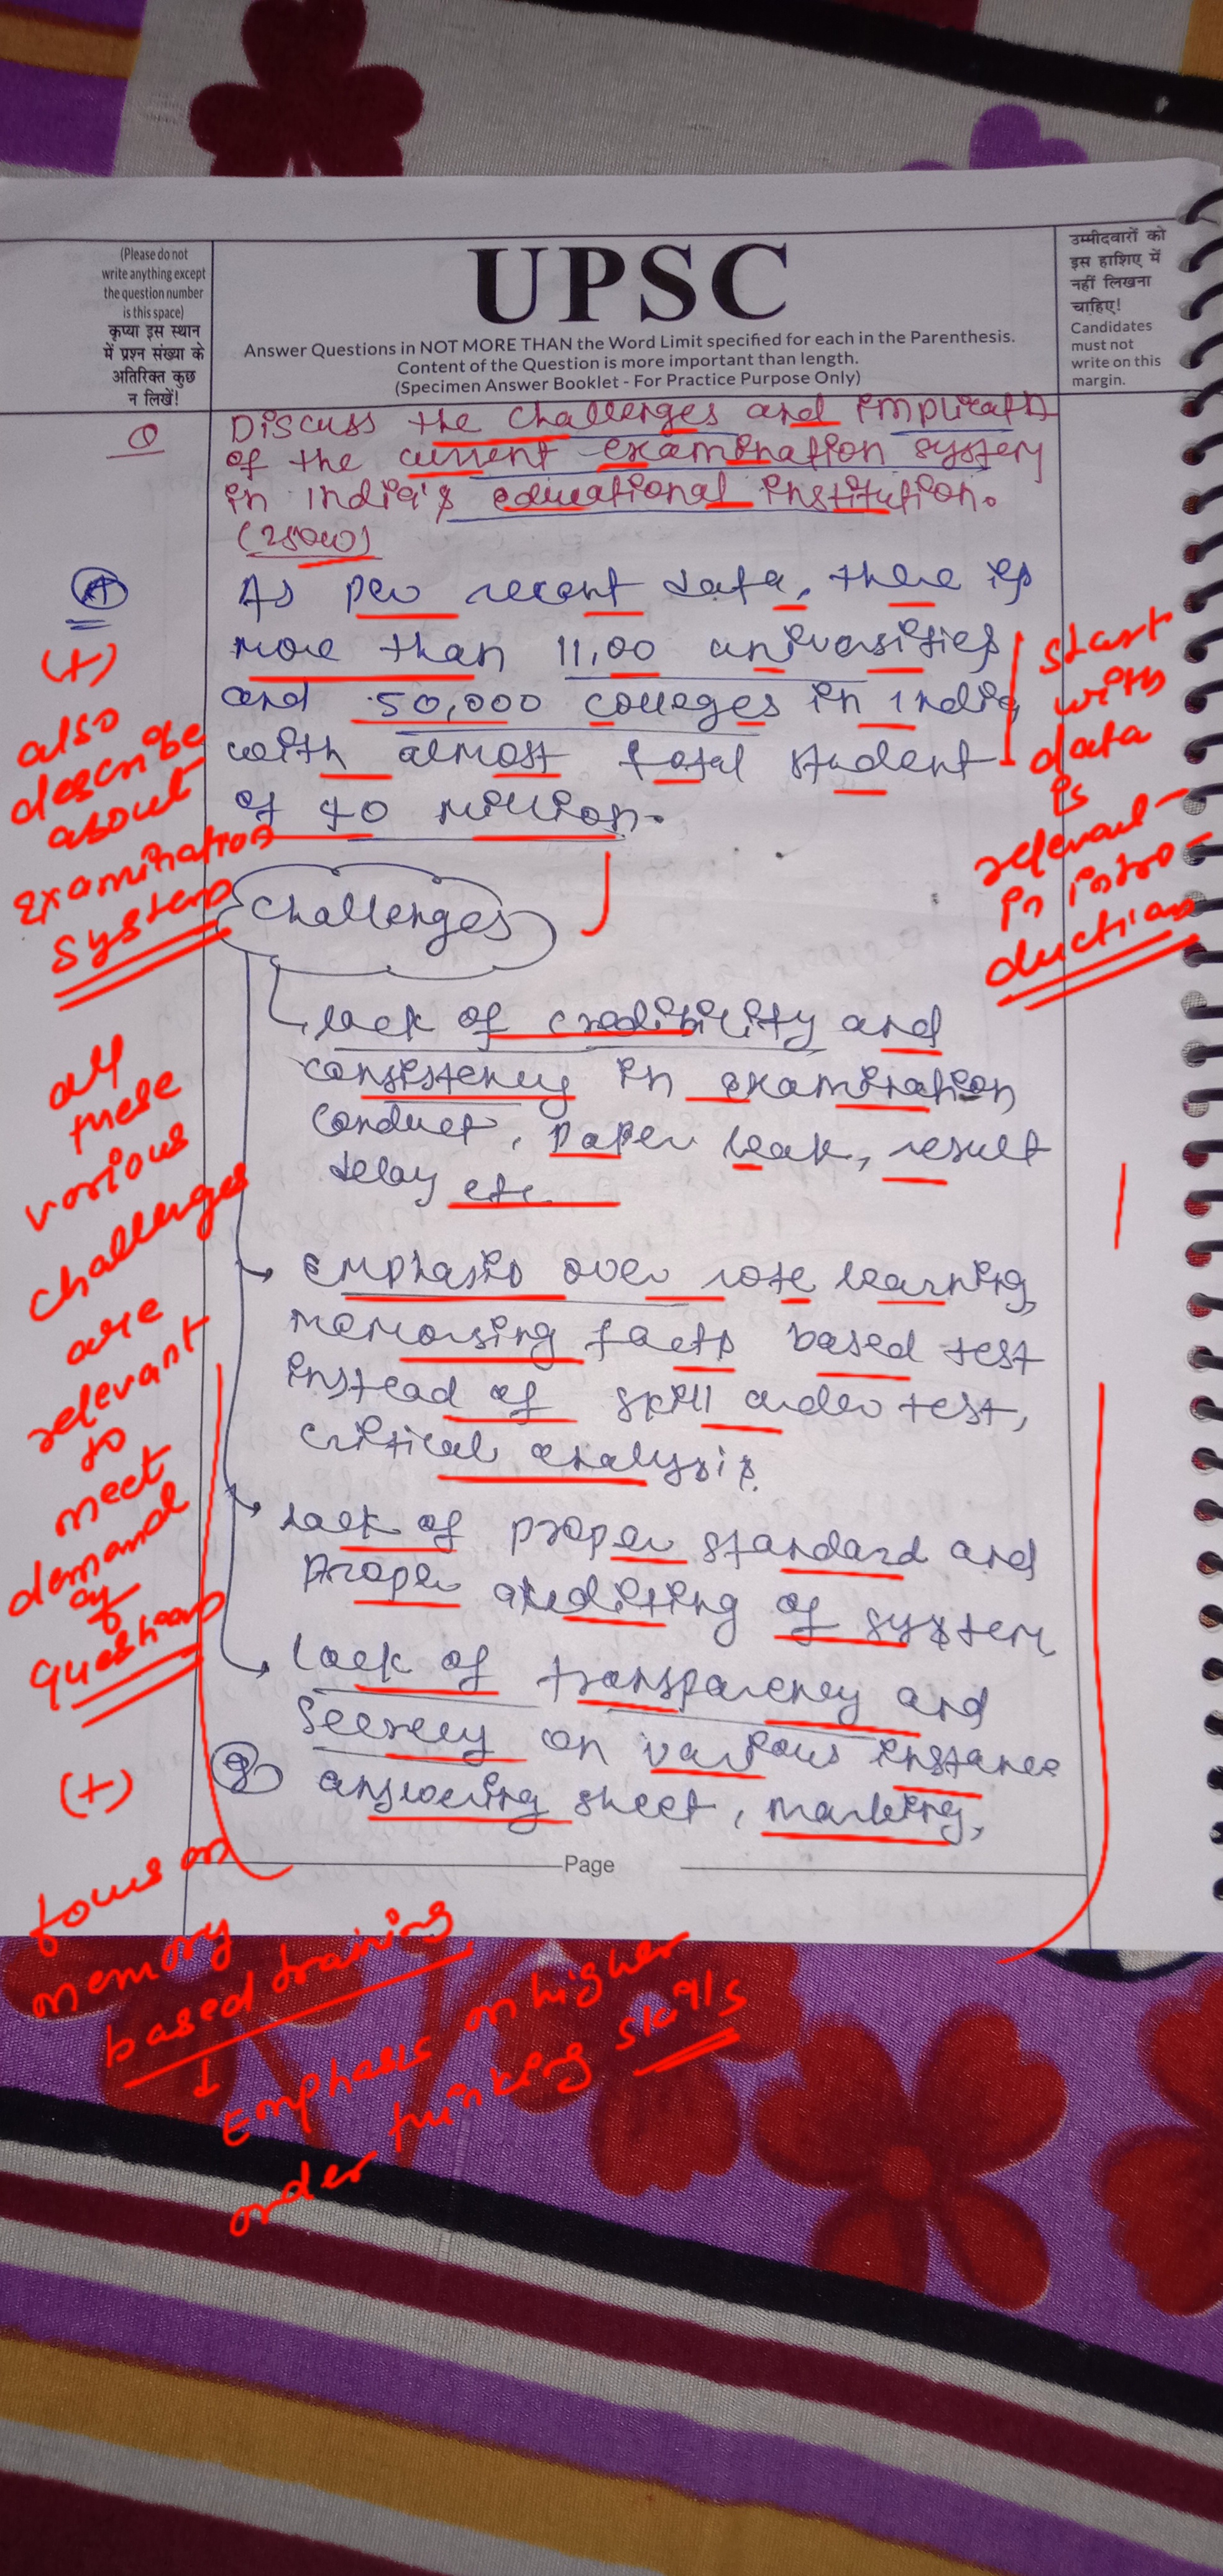 (Please do not
write anything except
the question number
is this space)
कृप्या इस स्थान
में प्रश्न संख्या के
अतिरिक्त कुछ
न लिखें!
UPSC
Answer Questions in NOT MORE THAN the Word Limit specified for each in the Parenthesis.
Content of the Question is more important than length.
(Specimen Answer Booklet - For Practice Purpose Only)
उम्मीदवारों को
इस हाशिए में
नहीं लिखना
चाहिए!
Candidates
must not
write on this
margin.
Q
Discuss the challenges and
of the current examination system
in India's educational institution.
(250w)
A
As per recent data, there is
more than 11,00 universities
and 50,000 colleges in India
with almost total student
of 40 million.
(+)
also
describe
about
Examination
system
start
with
data
is
relevant
in intro-
duction
Challenges
lack of credibility and
consistency in examination
conduct, paper leak, result
delay etc
Emphasis over rote learning,
memorising facts based test
instead of skill test,
critical analysis.
lack of proper standard and
proper auditing of system
lack of transparency and
Secrecy on various instance
answering sheet, marking,
all
these
various
challenges
are
relevant
to
meet
demand
of
question
(+)
Page
focus on
memory
based training
↓
Emphasis on higher
order thinking skills